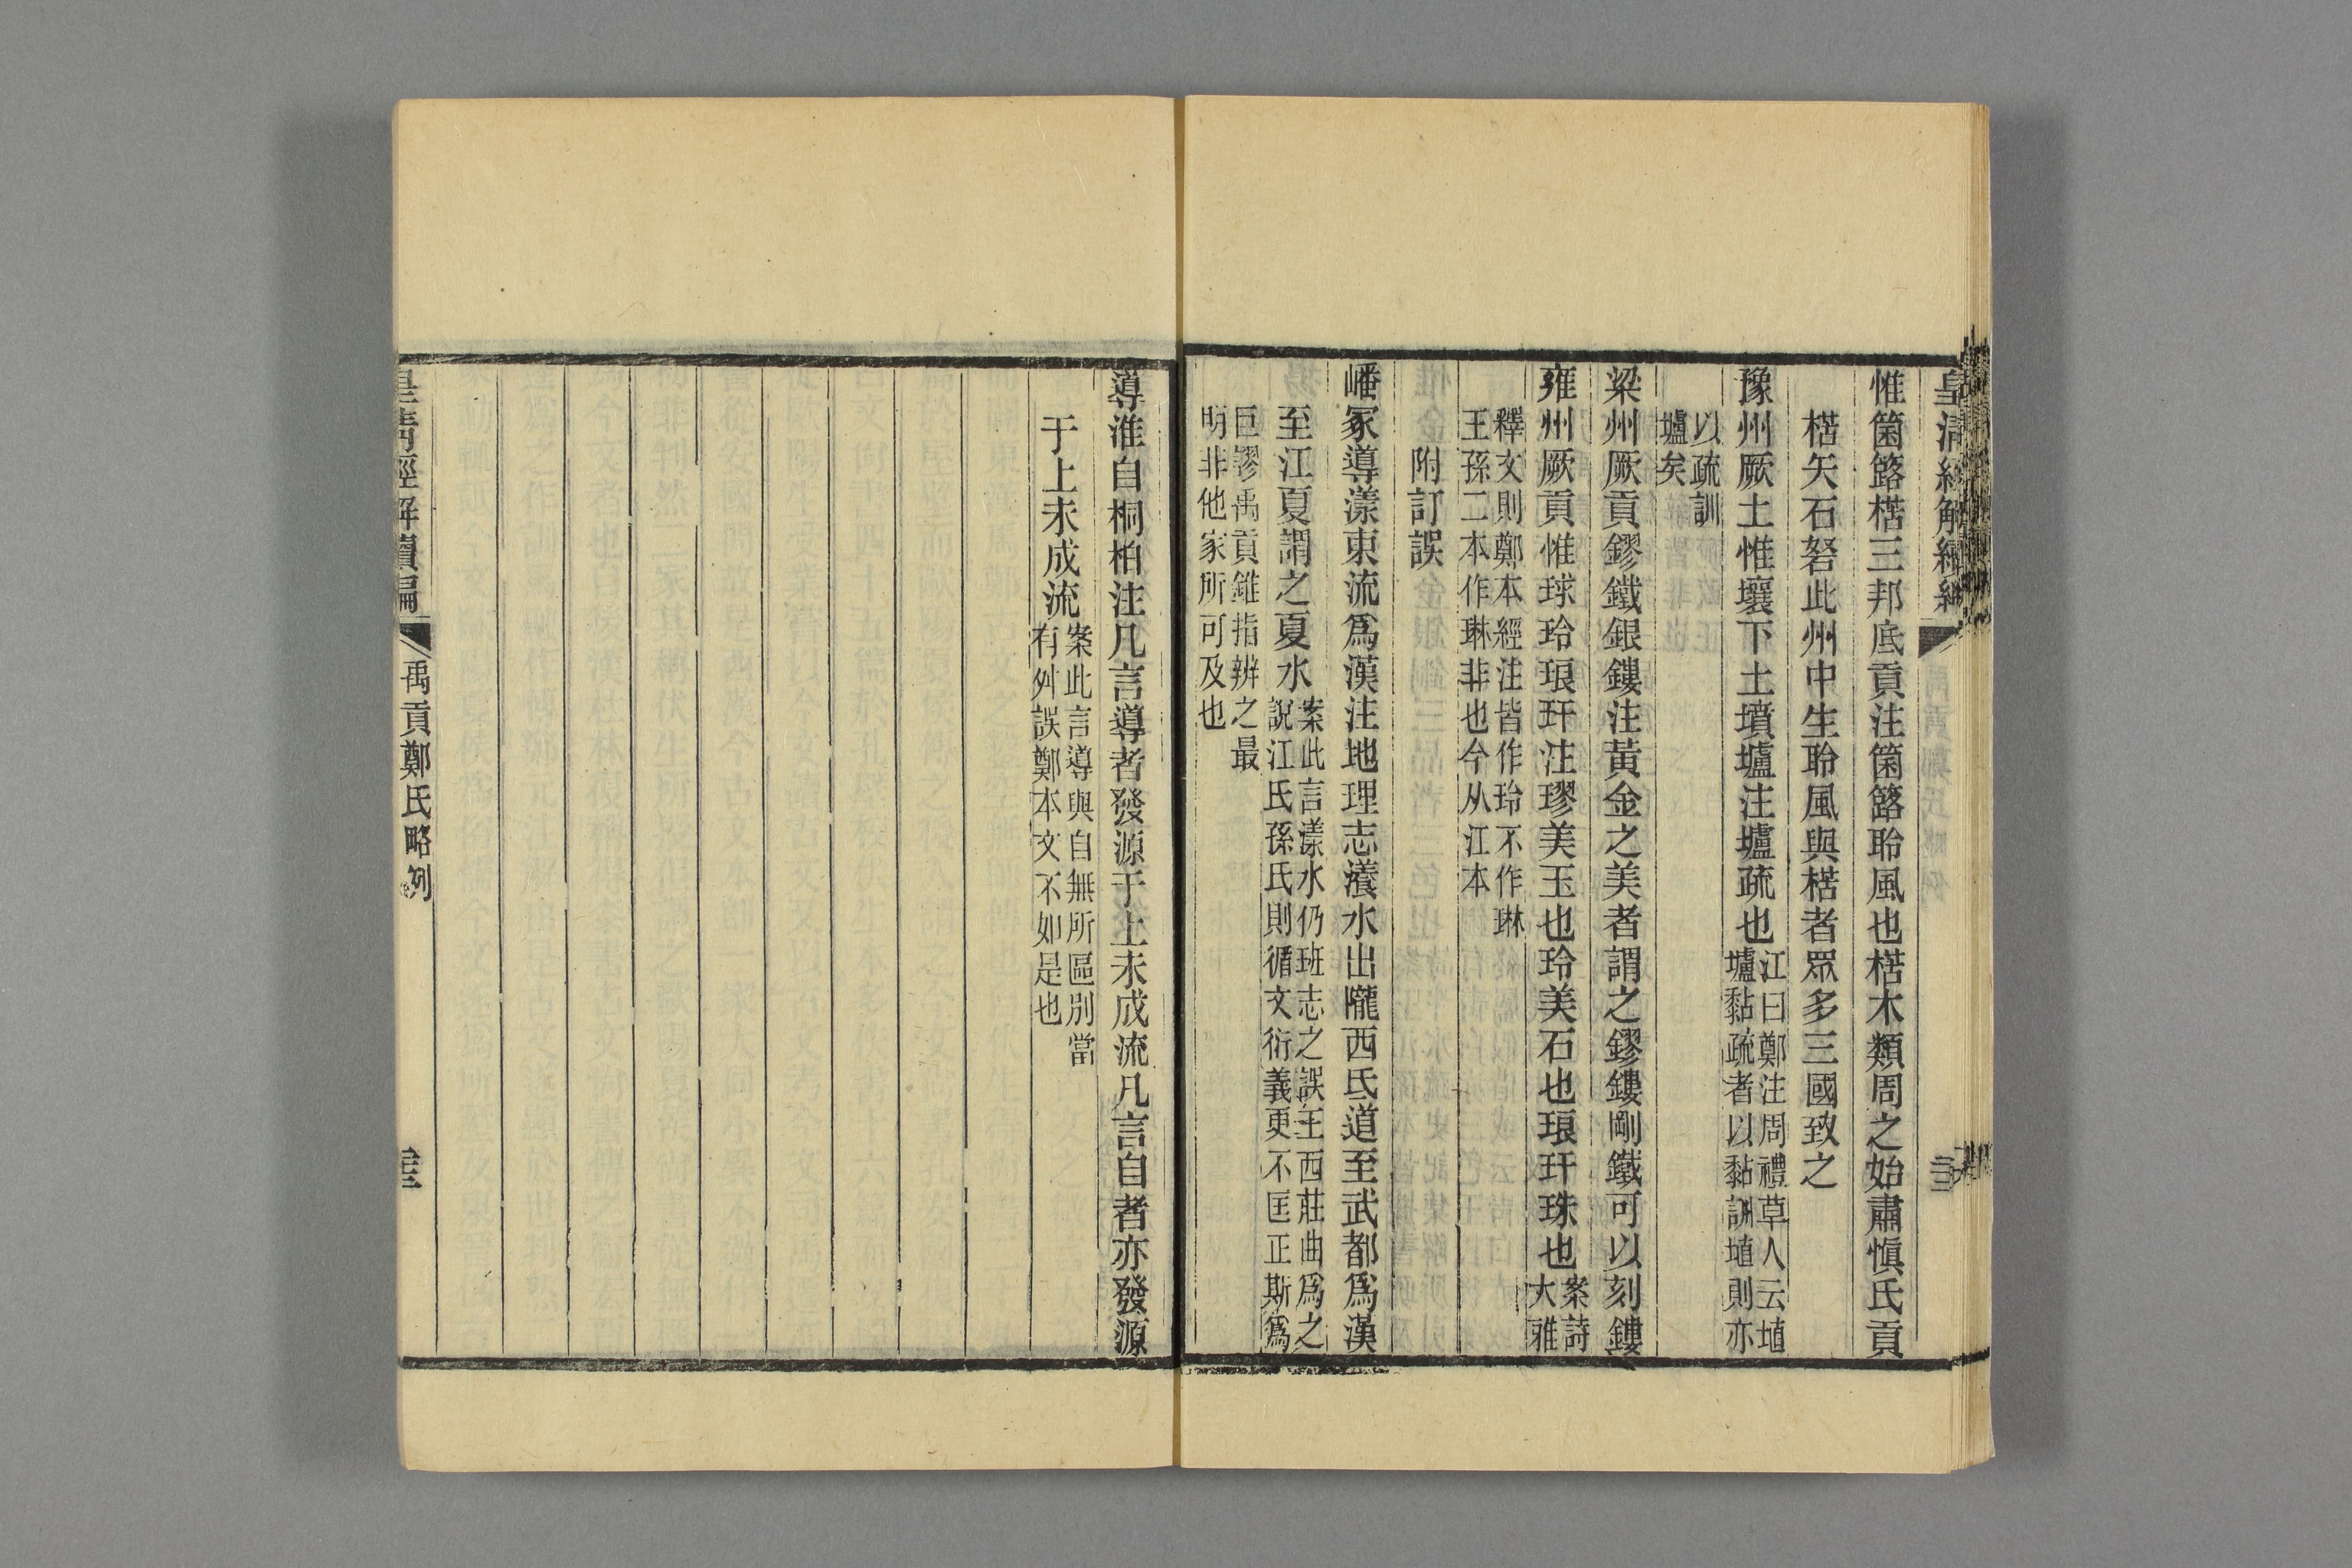 惟箘簬楛三邦底貢注箘簬聆風也楛木類周之始肅愼氏貢
楛矢石砮此州中生聆風與楛者眾多三國致之
豫州厥土惟壤下土墳壚注壚疏也江曰鄭注周禮草人云埴
壚黏疏者以黏訓埴則亦
以疏訓
壚矣
梁州厥貢鏐鐵銀鏤注黃金之美者謂之鏐鏤剛鐵可以刻鏤
雍州厥貢惟球玲琅玕注璆美玉也玲美石也琅玕珠也案詩
大雅
釋文則鄭本經注皆作玲不作琳
王孫二本作琳非也今从江本
附訂誤
嶓冢導漾東流爲漢注地理志瀁水出隴西氐道至武都爲漢
至江夏謂之夏水案此言漾水仍班志之誤王西莊曲爲之
說江氏孫氏則循文衍義更不匡正斯爲
巨謬禹貢錐指辨之最
明非他家所可及也
導淮自桐柏注凡言導者發源于上未成流凡言自者亦發源
于上未成流案此言導與自無所區別當
有舛誤鄭本文不如是也
皇清經解續編
禹貢鄭氏略例